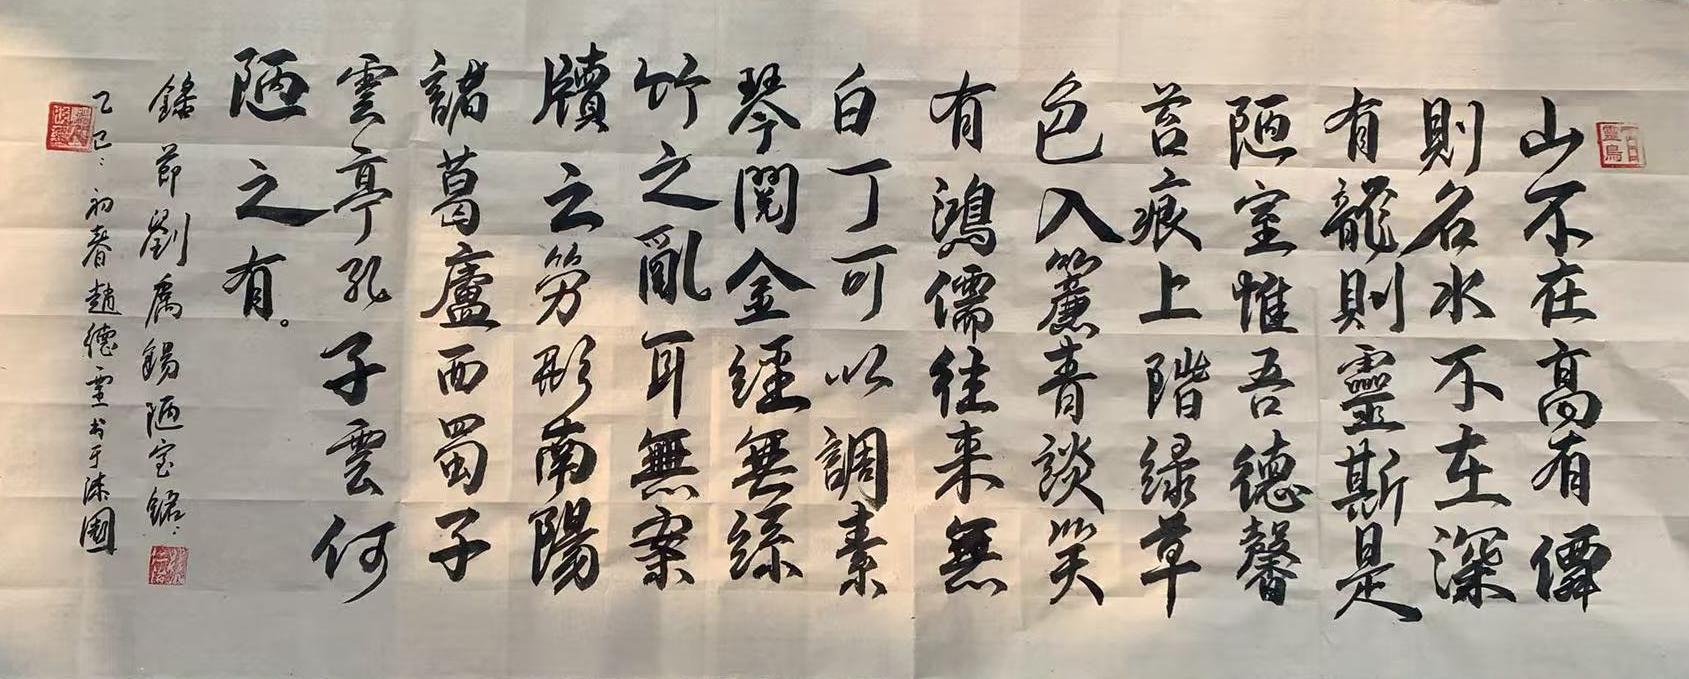 山不在高有僊
則名水不在深
有龍則靈斯是
陋室惟吾德馨
苔痕上階緑草
色入簾青談笑
有鴻儒往来無
白丁可以調素
琴閲金經無絲
竹之亂耳無案
牘之勞形南陽
諸葛廬西蜀子
雲亭孔子雲何
陋之有。
錄節劉禹錫陋室銘
乙巳初春趙德靈书于